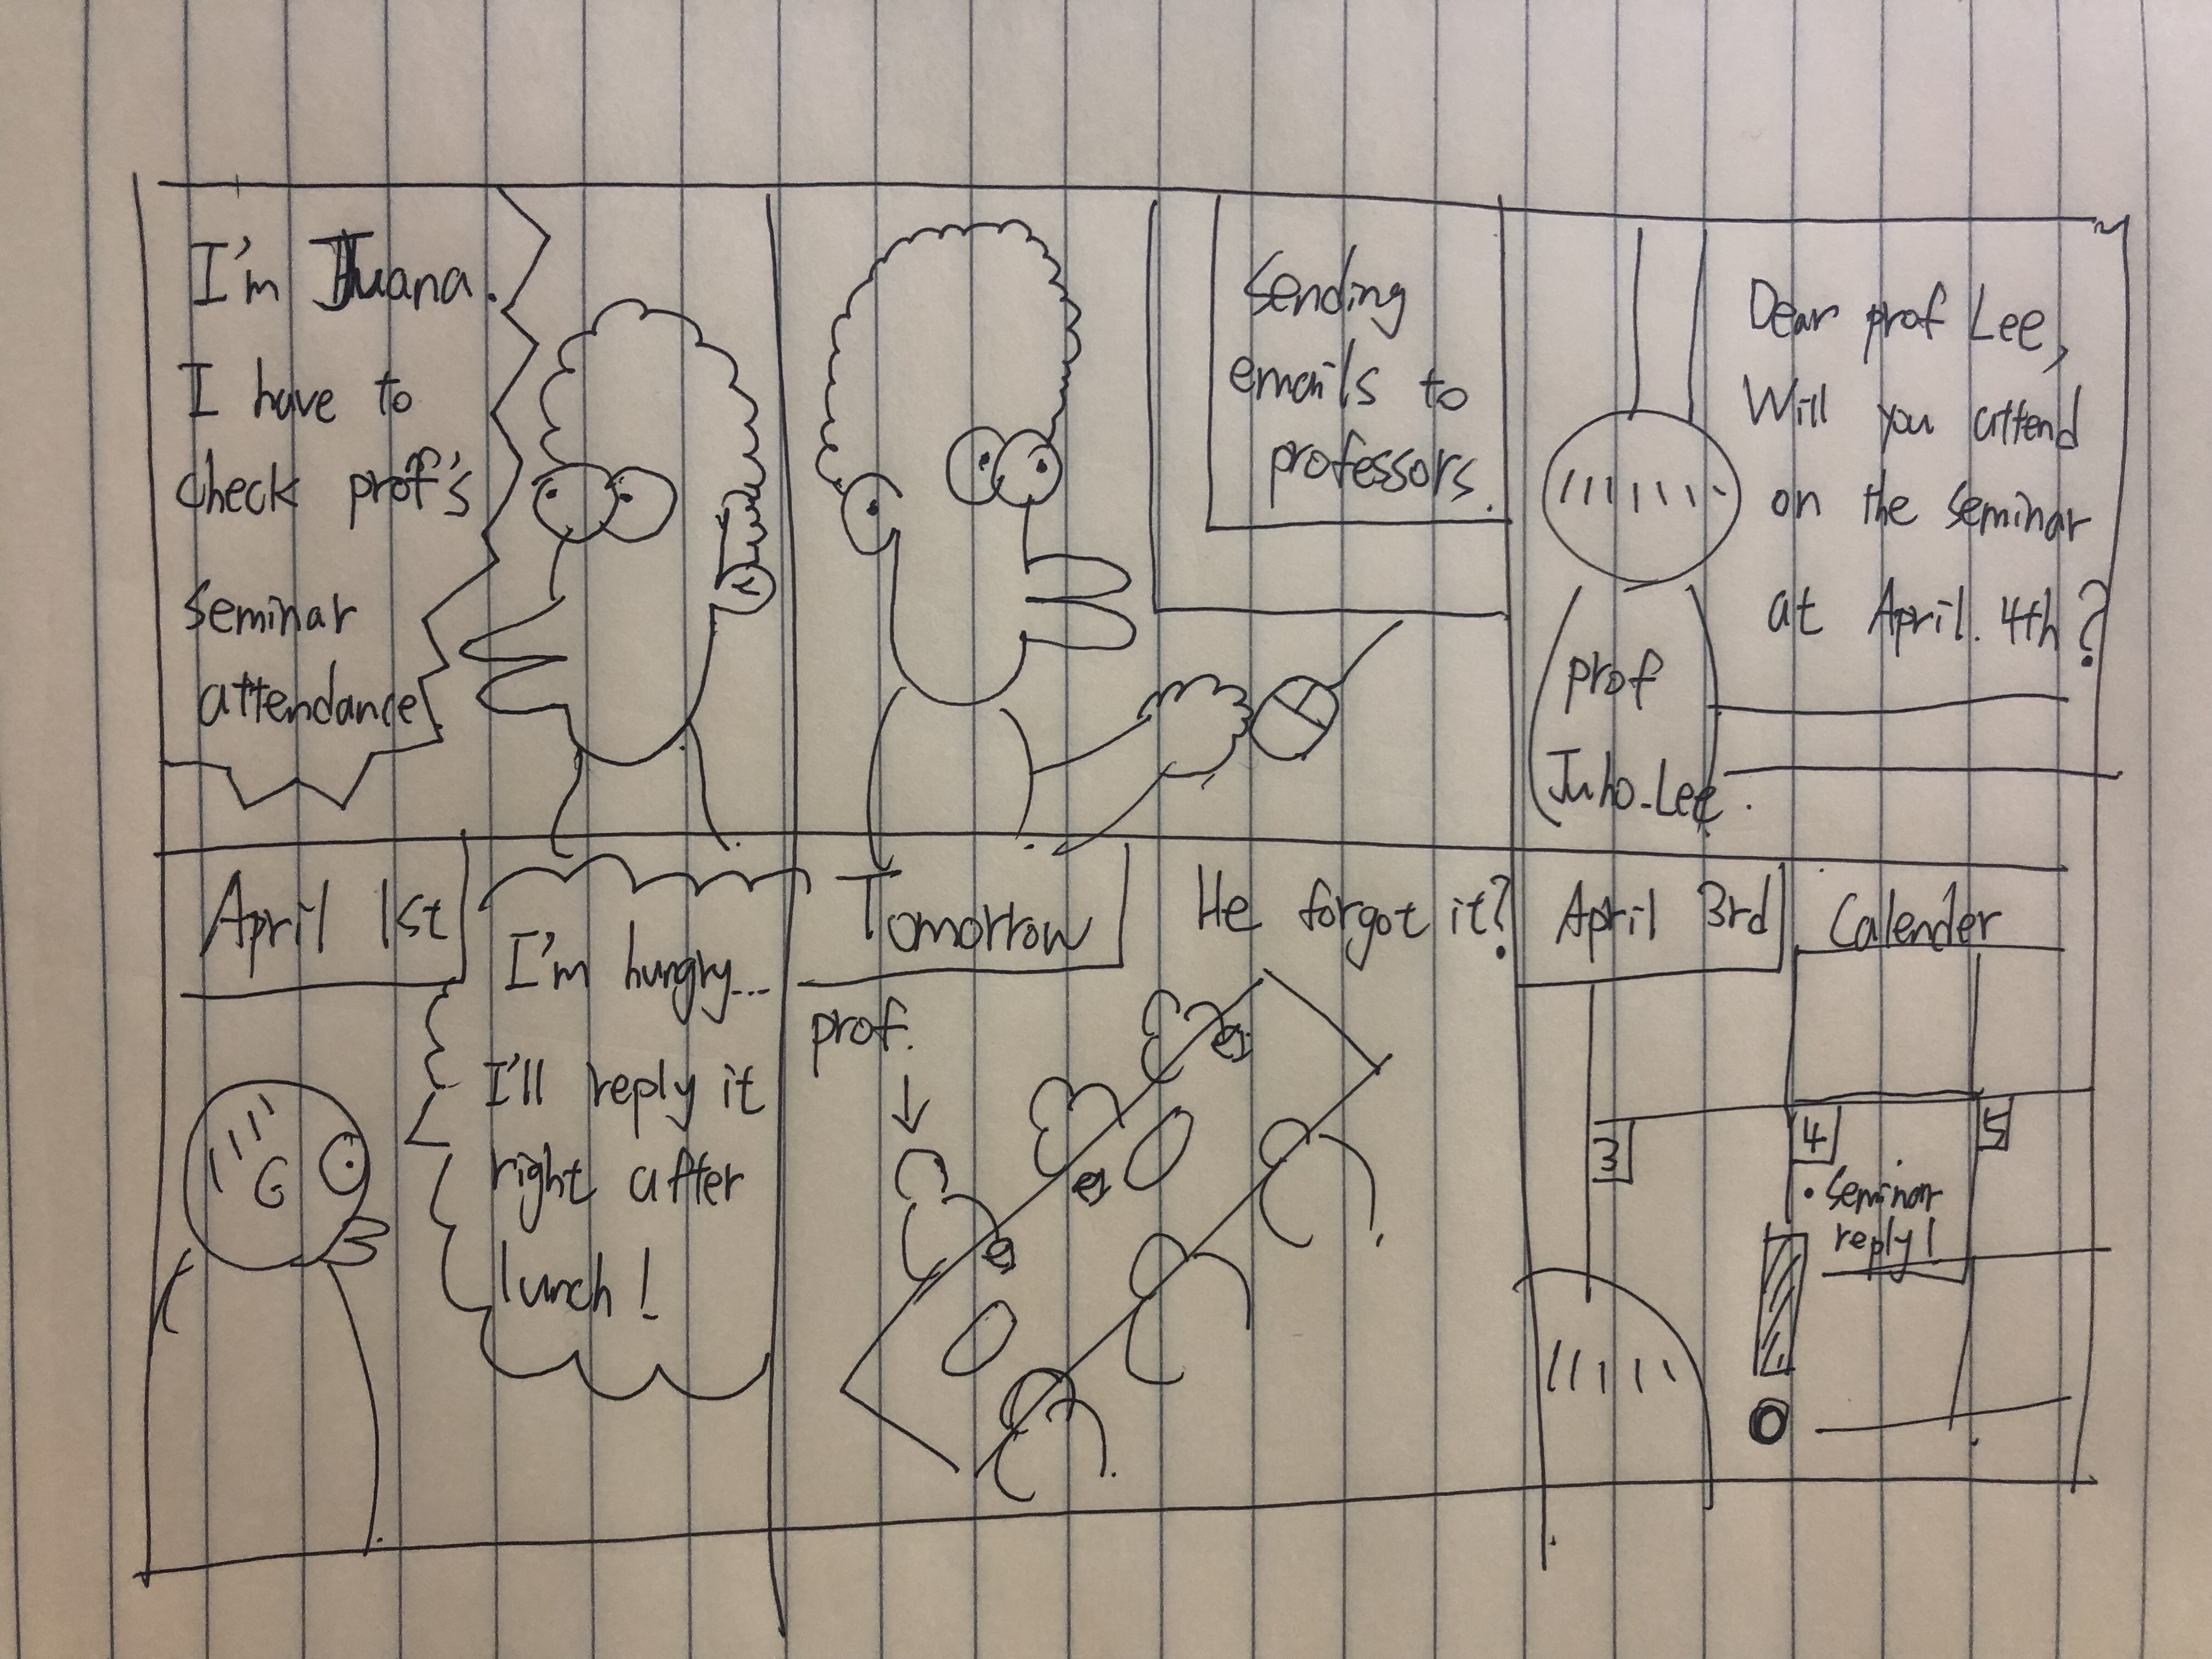 I'm Juana.
I have to
check prof's
seminar
attendance
Sending
emails to
professors.
Dear prof Lee,
Will you attend
on the seminar
at April. 4th?
prof
Juho-Lee.
April 1st
I'm hungry...
I'll reply it
right after
lunch!
Tomorrow
He forgot it?
prof.
April 3rd
Calender
3
4
5
• seminar
reply!